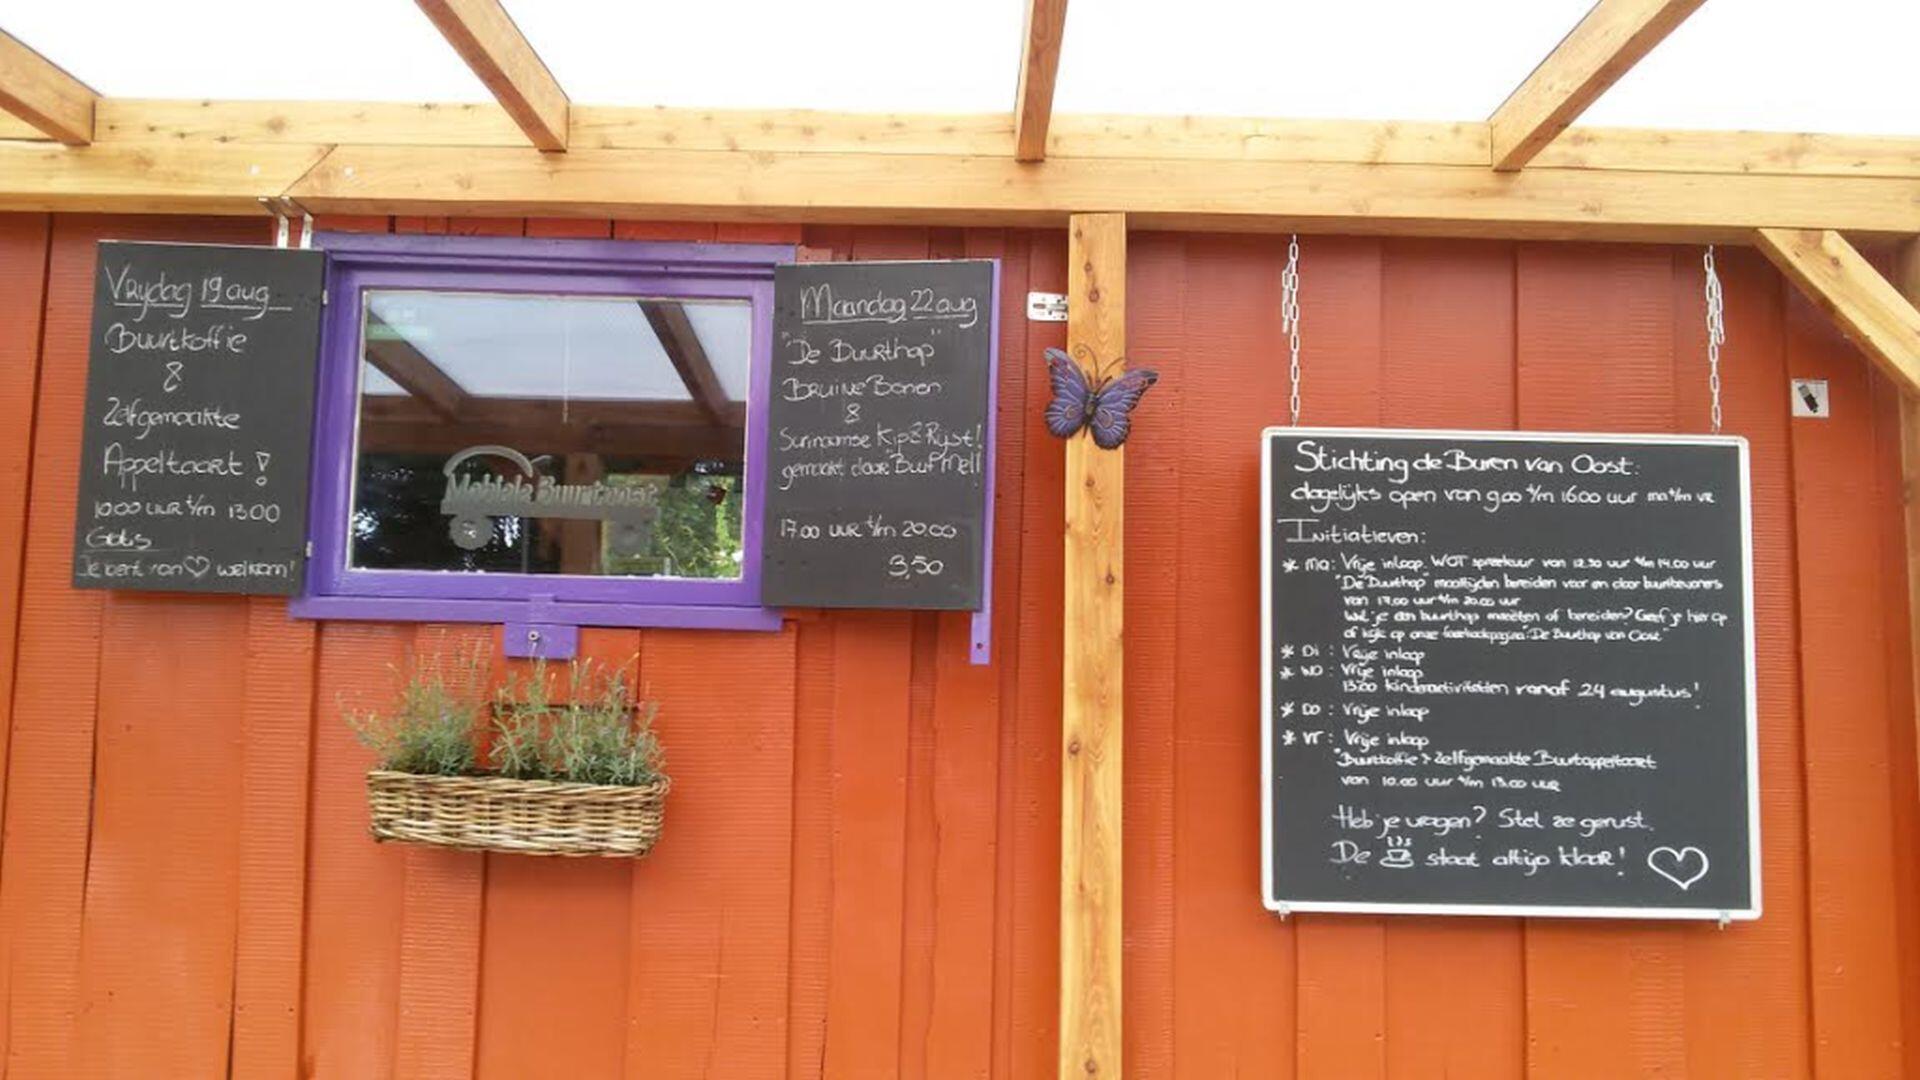 Vrijdag 19 aug
Buurtkoffie
&
Zelfgemaakte
Appeltaart!
10.00 uur t/m 13.00
Gratis
Je bent van ♡ welkom!
Mobiele Buurtpost
Maandag 22 aug
"De Buurthap"
Bruine Bonen
&
Surinaamse Kip & Rijst!
gemaakt door Buuf Mell
17.00 uur t/m 20.00
3,50
Stichting de Buren van Oost:
dagelijks open van 9.00 t/m 16.00 uur ma t/m vr
Initiatieven:
* Ma: Vrije inloop. WOT spreekuur van 12.30 uur t/m 14.00 uur
"De Buurthap" maaltijden bereiden voor en door buurtbewoners
van 17.00 uur t/m 20.00 uur
Wil je een buurthap meeëten of bereiden? Geef je hier op
of kijk op onze facebookpagina "De Buurthap van Oost"
* Di: Vrije inloop
* Wo: Vrije inloop
13.00 kinderactiviteiten vanaf 24 augustus!
* Do: Vrije inloop
* Vr: Vrije inloop
"Buurtkoffie & Zelfgemaakte Buurtappeltaart
van 10.00 uur t/m 13.00 uur
Heb je vragen? Stel ze gerust.
De ☕ staat altijd klaar! ♡